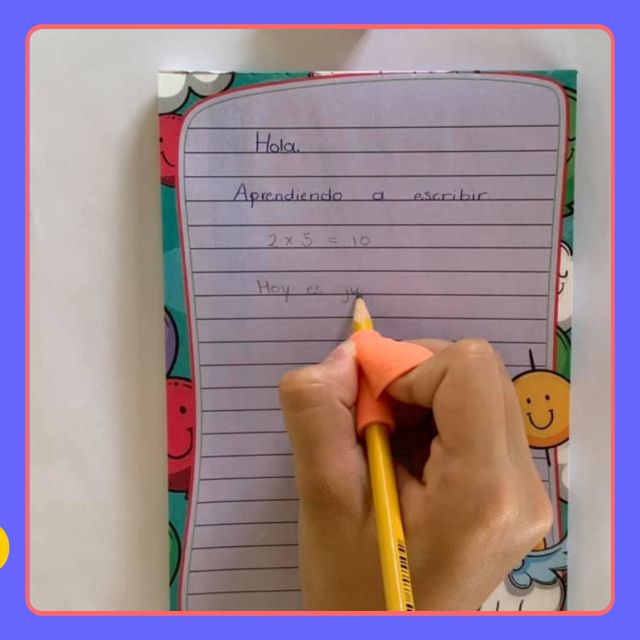 Hola.
Aprendiendo a escribir.
2 x 5 = 10
Hoy es ju